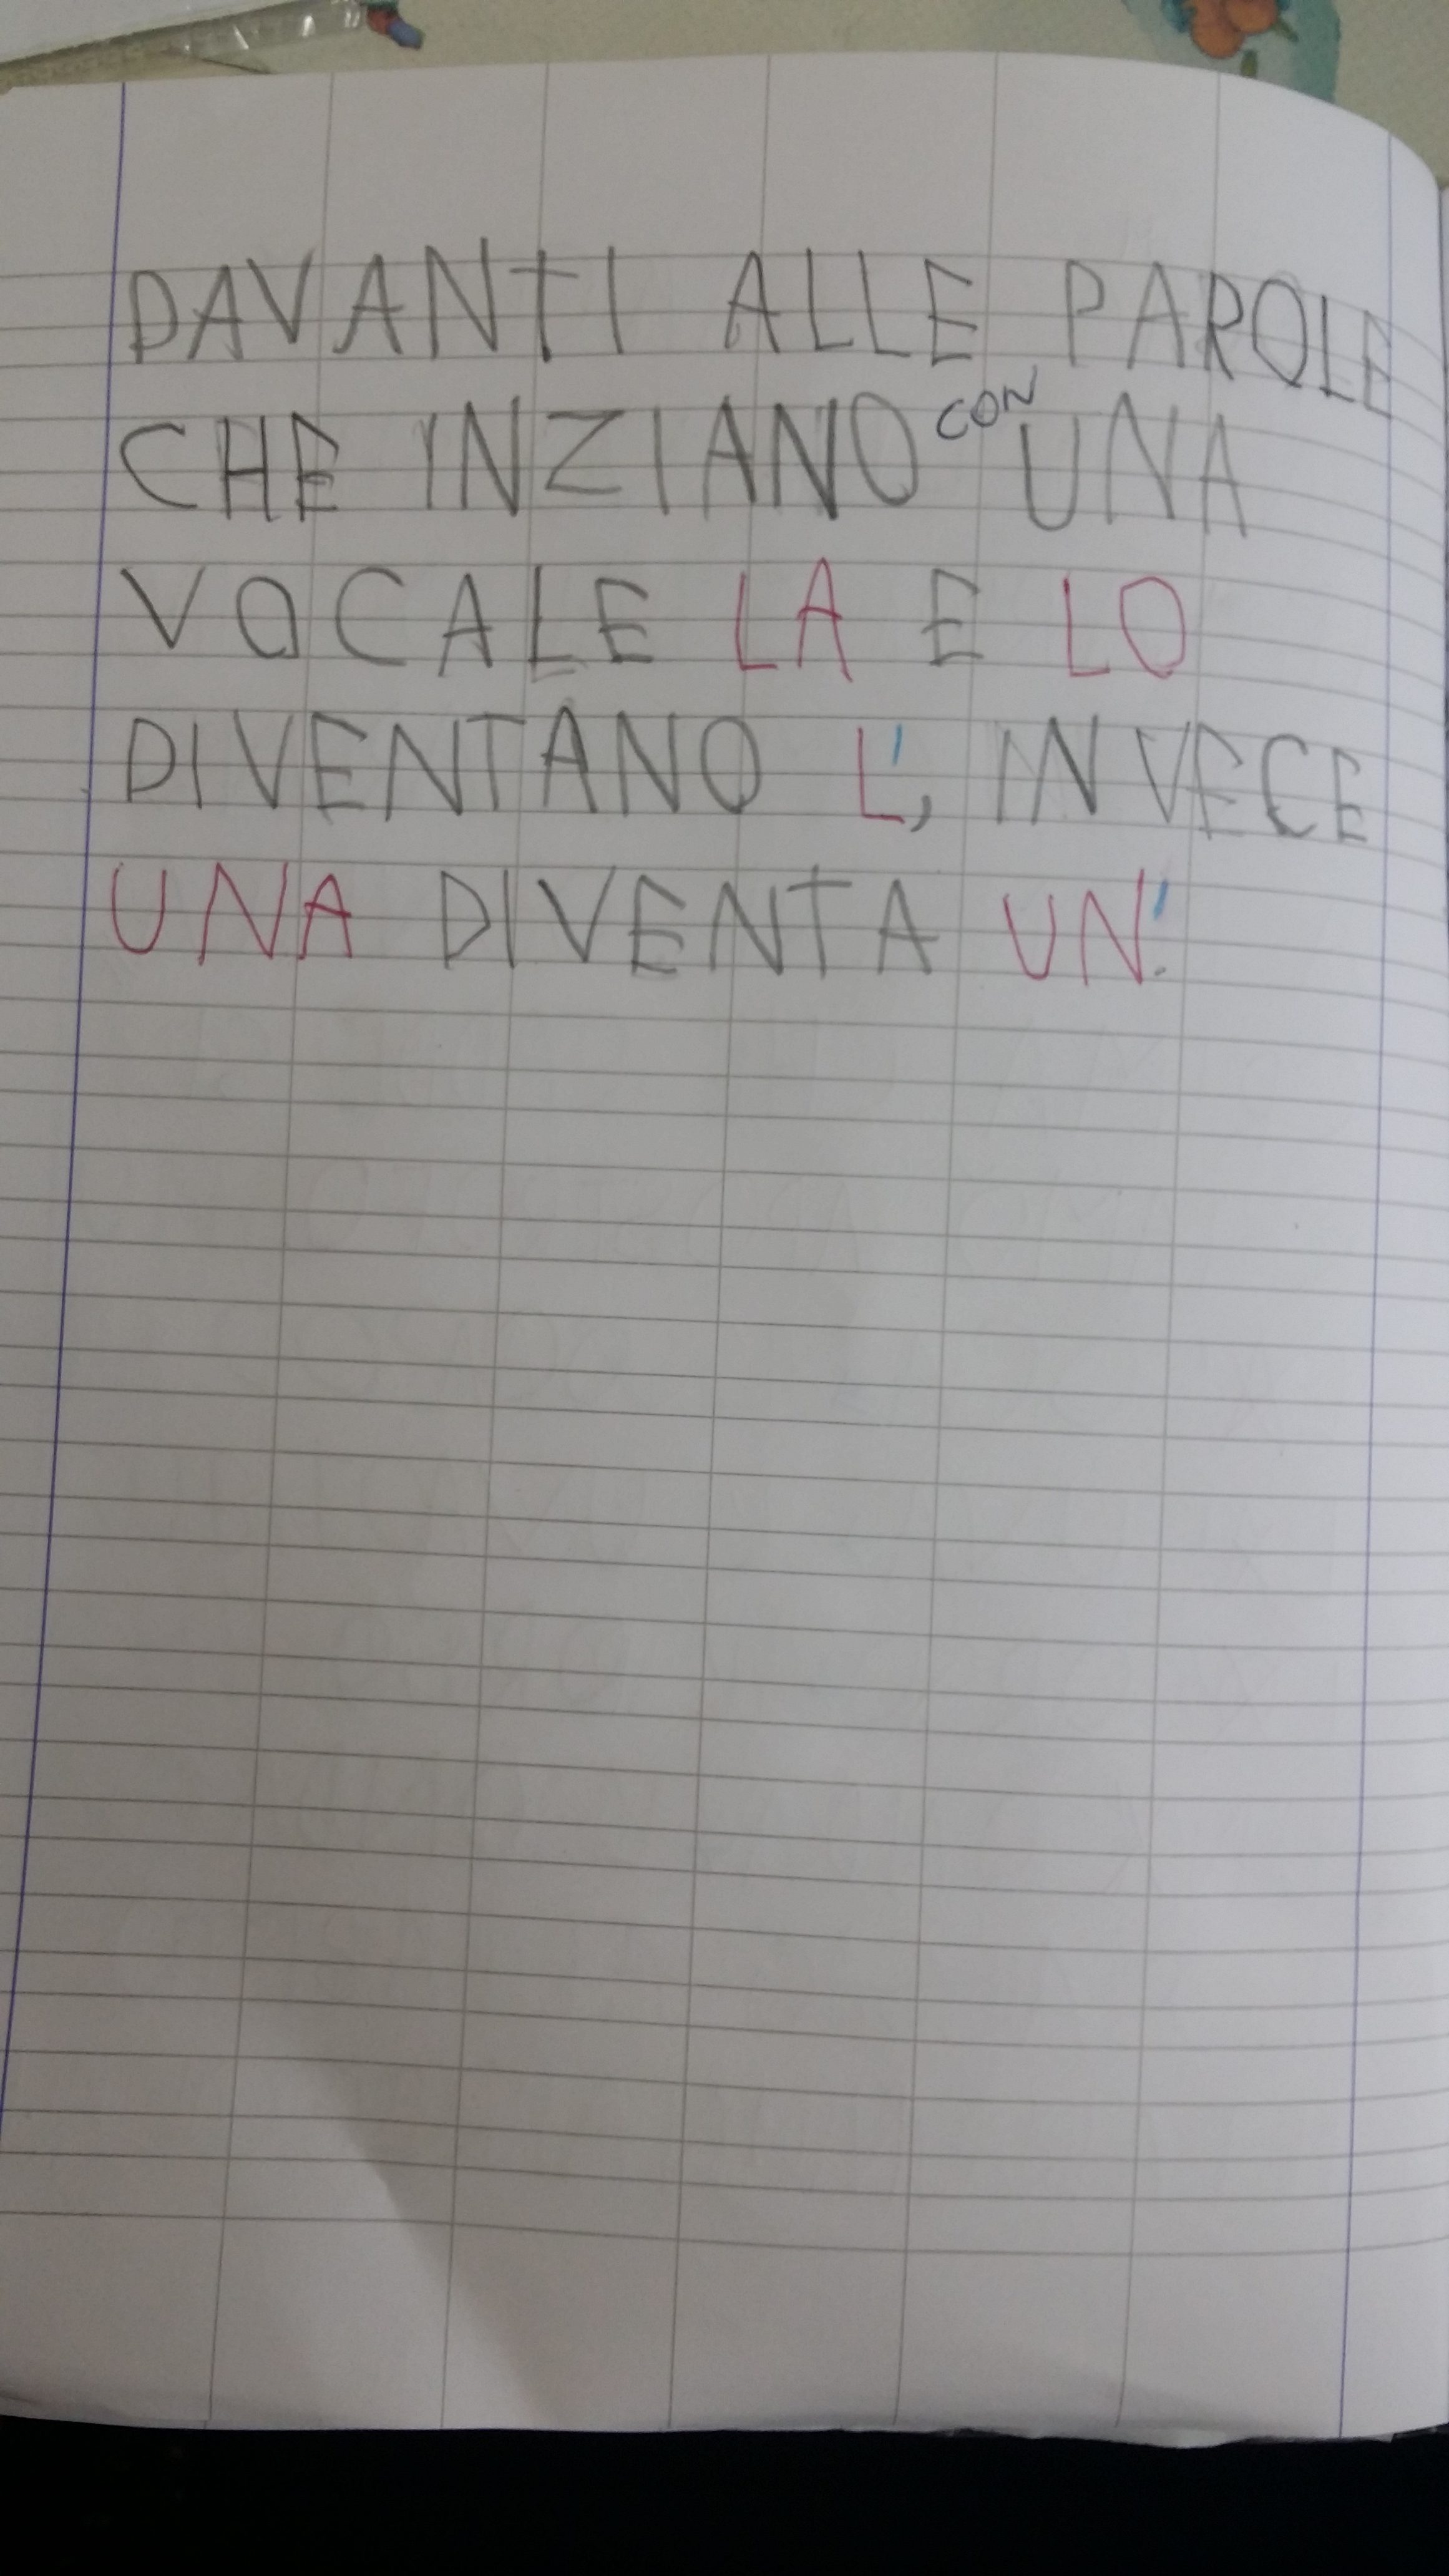 DAVANTI ALLE PAROLE
CHE INZIANO CON UNA
VOCALE LA E LO
DIVENTANO L', INVECE
UNA DIVENTA UN'.